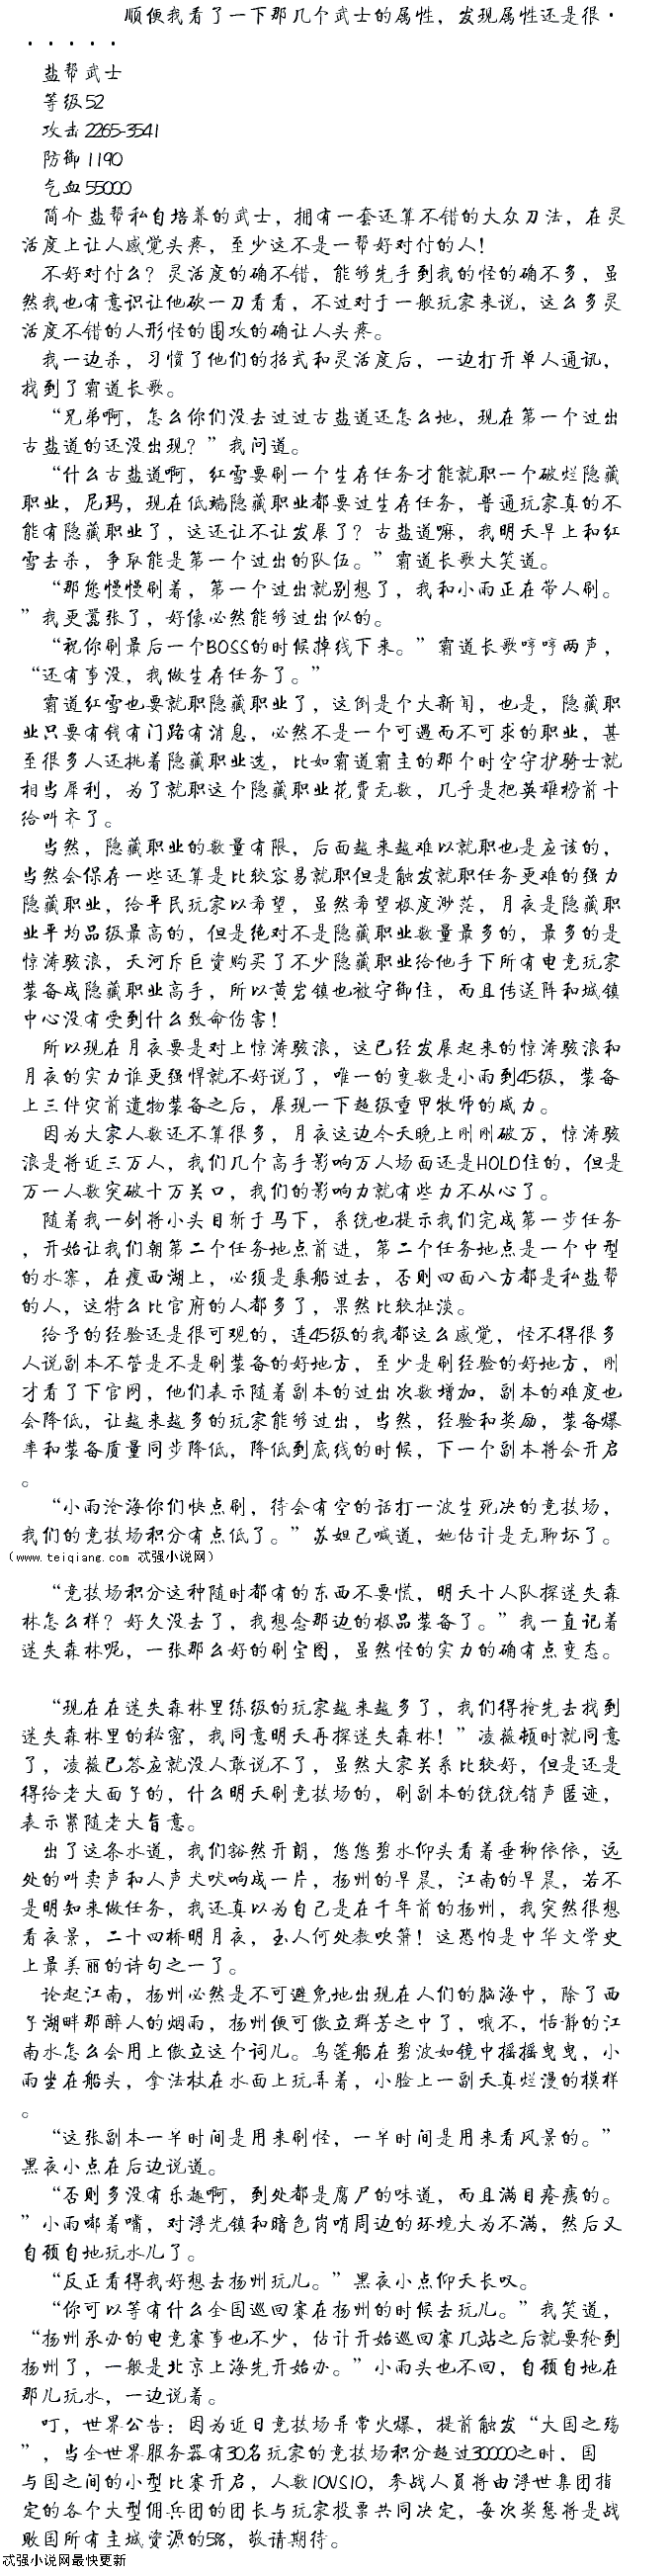 顺便我看了一下那几个武士的属性，发现属性还是很·
·····
盐帮武士
等级52
攻击2265-3541
防御1190
气血55000
简介 盐帮私自培养的武士，拥有一套还算不错的大众刀法，在灵
活度上让人感觉头疼，至少这不是一帮好对付的人！
不好对付么？灵活度的确不错，能够先手到我的怪的确不多，虽
然我也有意识让他砍一刀看看，不过对于一般玩家来说，这么多灵
活度不错的人形怪的围攻的确让人头疼。
我一边杀，习惯了他们的招式和灵活度后，一边打开单人通讯，
找到了霸道长歌。
“兄弟啊，怎么你们没去过过古盐道还怎么地，现在第一个过出
古盐道的还没出现？”我问道。
“什么古盐道啊，红雪要刷一个生存任务才能就职一个破烂隐藏
职业，尼玛，现在低端隐藏职业都要过生存任务，普通玩家真的不
能有隐藏职业了，这还让不让发展了？古盐道嘛，我明天早上和红
雪去杀，争取能是第一个过出的队伍。”霸道长歌大笑道。
“那您慢慢刷着，第一个过出就别想了，我和小雨正在带人刷。
”我更嚣张了，好像必然能够过出似的。
“祝你刷最后一个BOSS的时候掉线下来。”霸道长歌哼哼两声，
“还有事没，我做生存任务了。”
霸道红雪也要就职隐藏职业了，这倒是个大新闻，也是，隐藏职
业只要有钱有门路有消息，必然不是一个可遇而不可求的职业，甚
至很多人还挑着隐藏职业选，比如霸道霸主的那个时空守护骑士就
相当犀利，为了就职这个隐藏职业花费无数，几乎是把英雄榜前十
给叫齐了。
当然，隐藏职业的数量有限，后面越来越难以就职也是应该的，
当然会保存一些还算是比较容易就职但是触发就职任务更难的强力
隐藏职业，给平民玩家以希望，虽然希望极度渺茫，月夜是隐藏职
业平均品级最高的，但是绝对不是隐藏职业数量最多的，最多的是
惊涛骇浪，天河斥巨资购买了不少隐藏职业给他手下所有电竞玩家
装备成隐藏职业高手，所以黄岩镇也被守御住，而且传送阵和城镇
中心没有受到什么致命伤害！
所以现在月夜要是对上惊涛骇浪，这已经发展起来的惊涛骇浪和
月夜的实力谁更强悍就不好说了，唯一的变数是小雨到45级，装备
上三件灾前遗物装备之后，展现一下超级重甲牧师的威力。
因为大家人数还不算很多，月夜这边今天晚上刚刚破万，惊涛骇
浪是将近三万人，我们几个高手影响万人场面还是HOLD住的，但是
万一人数突破十万关口，我们的影响力就有些力不从心了。
随着我一剑将小头目斩于马下，系统也提示我们完成第一步任务
，开始让我们朝第二个任务地点前进，第二个任务地点是一个中型
的水寨，在瘦西湖上，必须是乘船过去，否则四面八方都是私盐帮
的人，这特么比官府的人都多了，果然比较扯淡。
给予的经验还是很可观的，连45级的我都这么感觉，怪不得很多
人说副本不管是不是刷装备的好地方，至少是刷经验的好地方，刚
才看了下官网，他们表示随着副本的过出次数增加，副本的难度也
会降低，让越来越多的玩家能够过出，当然，经验和奖励，装备爆
率和装备质量同步降低，降低到底线的时候，下一个副本将会开启
。
“小雨沧海你们快点刷，待会有空的话打一波生死决的竞技场，
我们的竞技场积分有点低了。”苏妲己喊道，她估计是无聊坏了。
（www.teiqiang.com 忒强小说网）
“竞技场积分这种随时都有的东西不要慌，明天十人队探迷失森
林怎么样？好久没去了，我想念那边的极品装备了。”我一直记着
迷失森林呢，一张那么好的刷宝图，虽然怪的实力的确有点变态。
“现在在迷失森林里练级的玩家越来越多了，我们得抢先去找到
迷失森林里的秘密，我同意明天再探迷失森林！”凌薇顿时就同意
了，凌薇已答应就没人敢说不了，虽然大家关系比较好，但是还是
得给老大面子的，什么明天刷竞技场的，刷副本的统统销声匿迹，
表示紧随老大旨意。
出了这条水道，我们豁然开朗，悠悠碧水仰头看着垂柳依依，远
处的叫卖声和人声犬吠响成一片，扬州的早晨，江南的早晨，若不
是明知来做任务，我还真以为自己是在千年前的扬州，我突然很想
看夜景，二十四桥明月夜，玉人何处教吹箫！这恐怕是中华文学史
上最美丽的诗句之一了。
论起江南，扬州必然是不可避免地出现在人们的脑海中，除了西
子湖畔那醉人的烟雨，扬州便可傲立群芳之中了，哦不，恬静的江
南水怎么会用上傲立这个词儿。乌篷船在碧波如镜中摇摇曳曳，小
雨坐在船头，拿法杖在水面上玩弄着，小脸上一副天真烂漫的模样
。
“这张副本一半时间是用来刷怪，一半时间是用来看风景的。”
黑夜小点在后边说道。
“否则多没有乐趣啊，到处都是腐尸的味道，而且满目疮痍的。
”小雨嘟着嘴，对浮光镇和暗色岗哨周边的环境大为不满，然后又
自顾自地玩水儿了。
“反正看得我好想去扬州玩儿。”黑夜小点仰天长叹。
“你可以等有什么全国巡回赛在扬州的时候去玩儿。”我笑道，
“扬州承办的电竞赛事也不少，估计开始巡回赛几站之后就要轮到
扬州了，一般是北京上海先开始办。”小雨头也不回，自顾自地在
那儿玩水，一边说着。
叮，世界公告：因为近日竞技场异常火爆，提前触发“大国之殇
”，当全世界服务器有30名玩家的竞技场积分超过30000之时，国
与国之间的小型比赛开启，人数10VS10，参战人员将由浮世集团指
定的各个大型佣兵团的团长与玩家投票共同决定，每次奖惩将是战
败国所有主城资源的5%，敬请期待。
忒强小说网最快更新